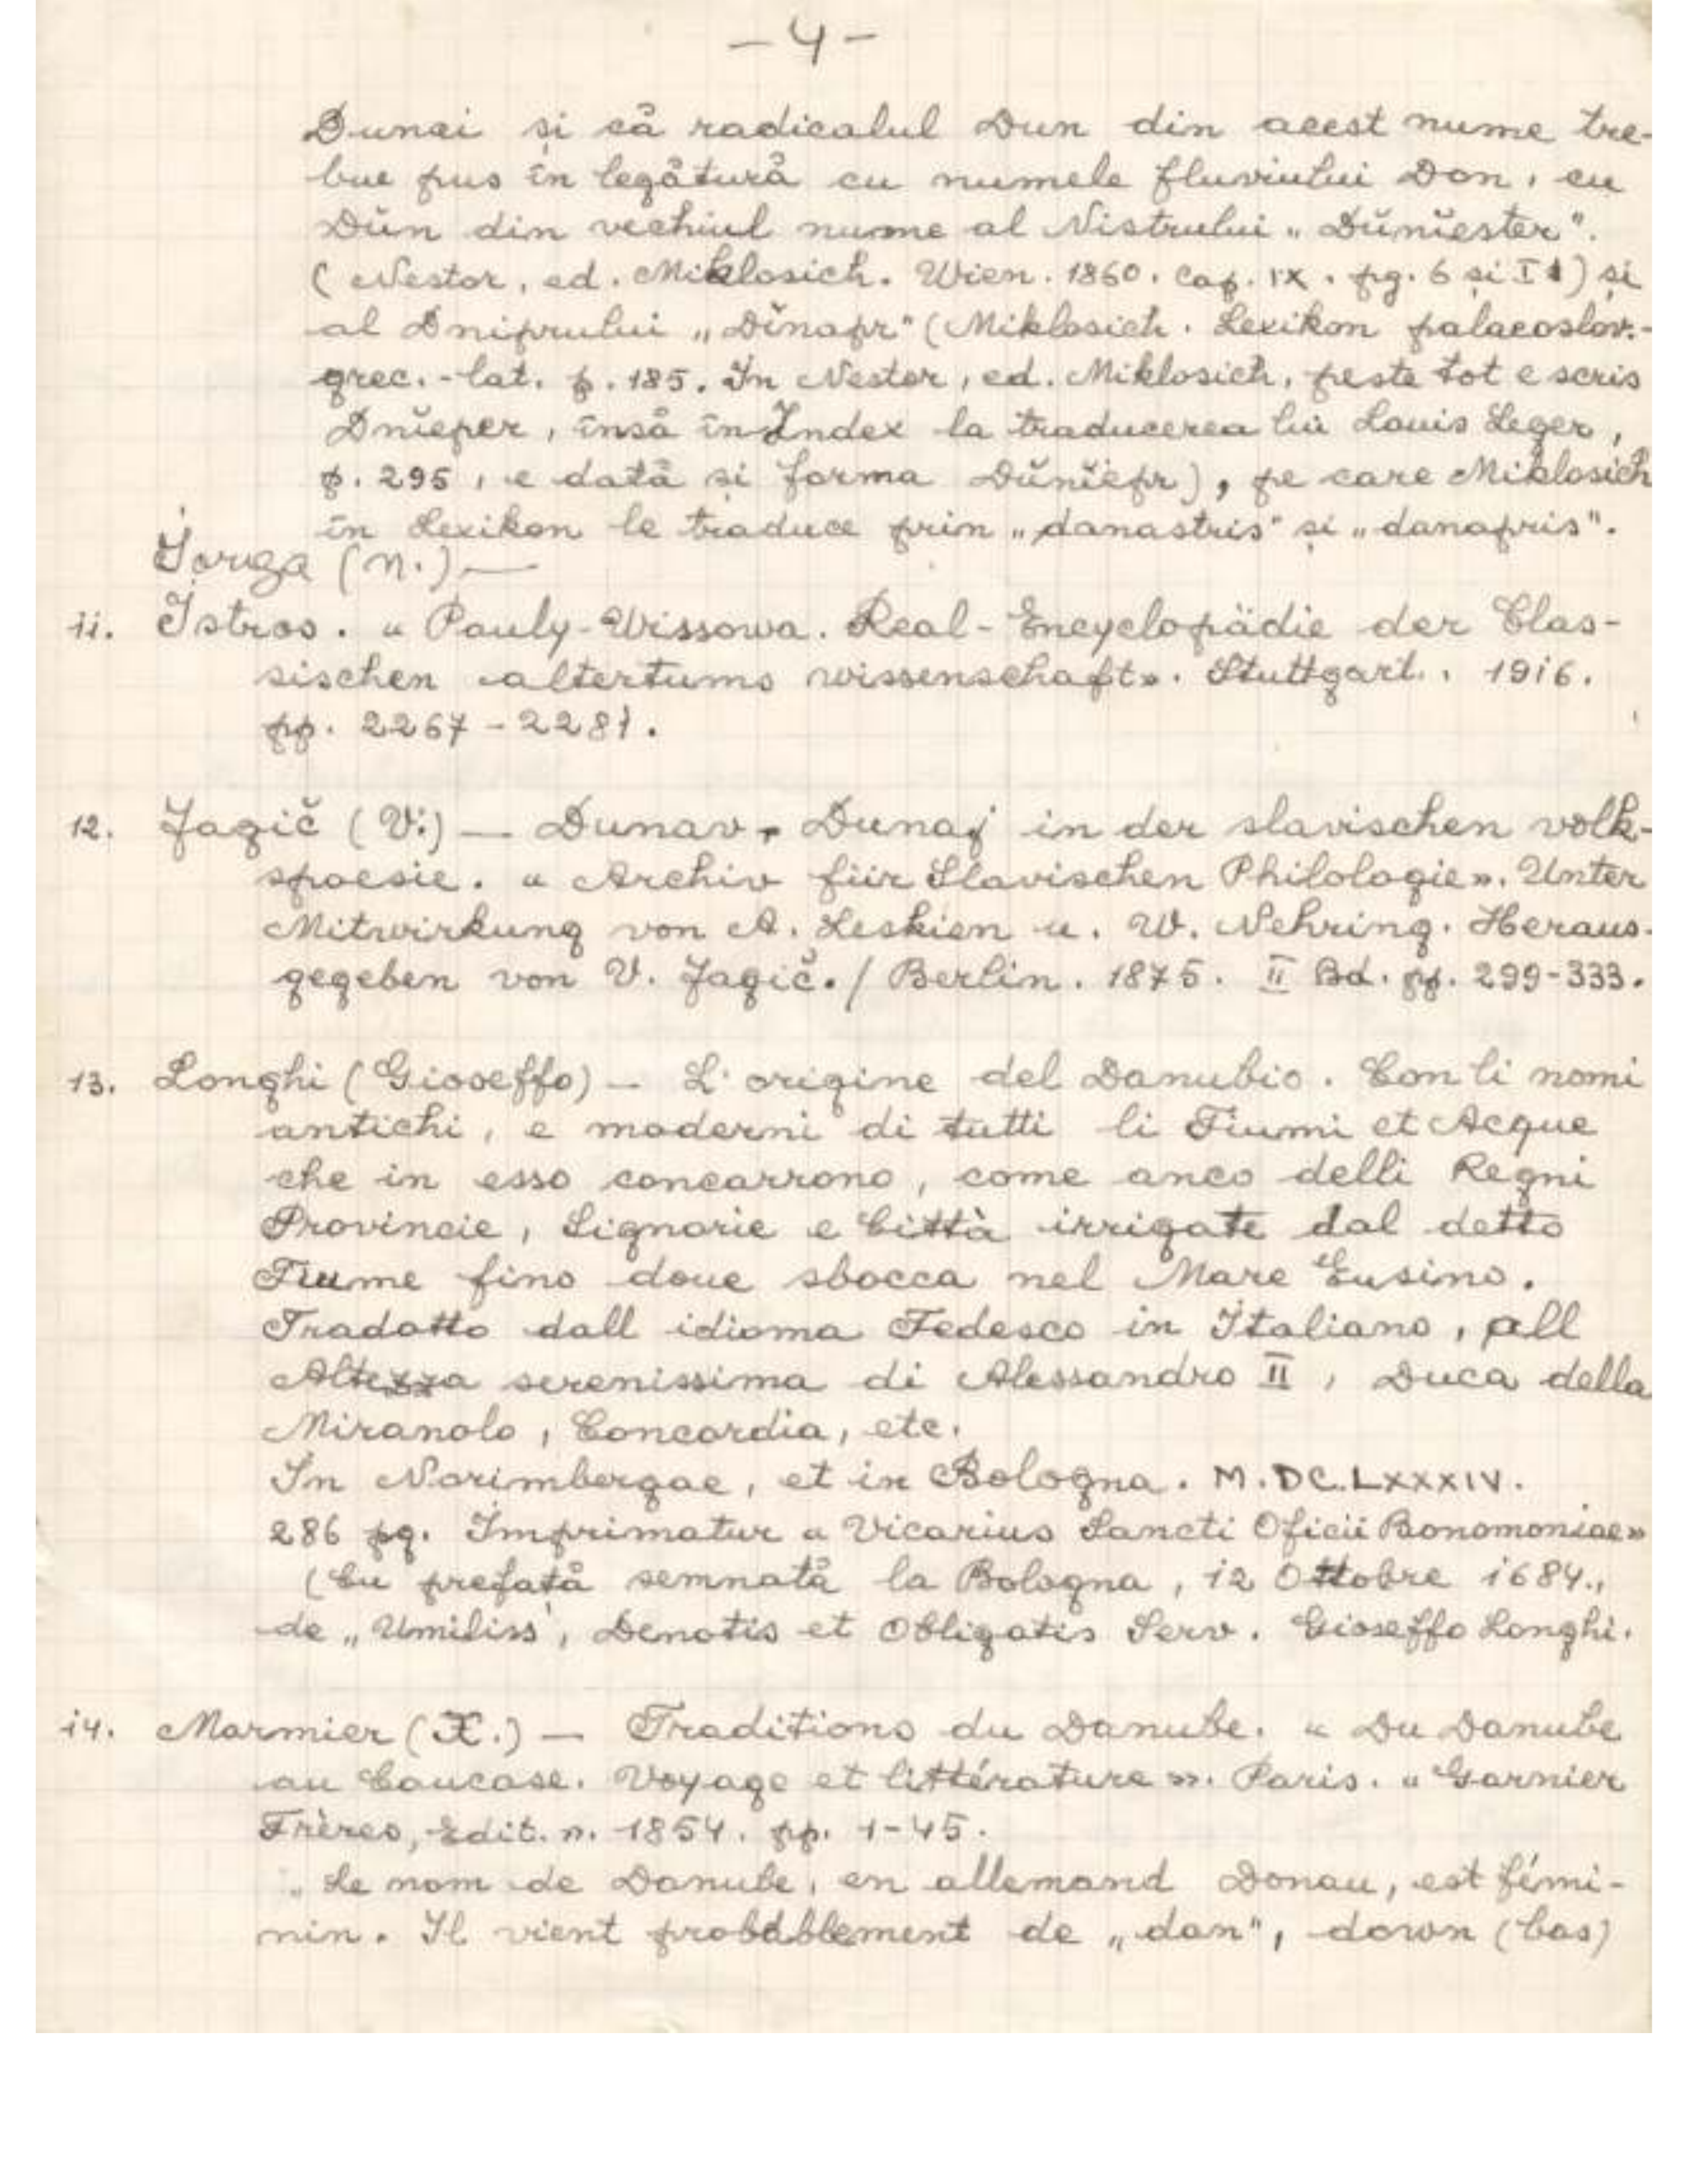 - 4 -
Dunai și că radicalul Dun din acest nume tre-
bue pus în legătură cu numele fluviului Don, cu
Dŭn din vechiul nume al Nistrului „Dŭnĭester".
(Nestor, ed. Miklosich. Wien. 1860. Cap. IX. pg. 6 și I1) și
al Dniprului „Dĭnapr" (Miklosich. Lexikon palaeoslov.-
grec.-lat. p. 185. In Nestor, ed. Miklosich, peste tot e scris
Dnĭeper, însă în Index la traducerea lui Louis Leger,
p. 295, e dată și forma Dŭnĭepr), pe care Miklosich
în Lexikon le traduce prin „danastris" și „danapris".
Iorga (N.) —
11. Istros. « Pauly-Wissowa. Real-Encyclopädie der Clas-
sischen altertums wissenschaft». Stuttgart. 1916.
pp. 2267-2281.
12. Jagič (V.) — Dunav, Dunaj in der slavischen volk-
spoesie. « Archiv für Slavischen Philologie». Unter
Mitwirkung von A. Leskien u. W. Nehring. Heraus-
gegeben von V. Jagič. / Berlin. 1875. II Bd. pp. 299-333.
13. Longhi (Gioseffo) — L'origine del Danubio. Con li nomi
antichi, e moderni di tutti li Fiumi et Acque
che in esso concarrono, come anco delli Regni
Provincie, Signorie e Città irrigate dal detto
Fiume fino doue sbocca nel Mare Eusino.
Tradotto dall idioma Tedesco in Italiano, all
Altezza serenissima di Alessandro II, Duca della
Miranolo, Concordia, etc.
In Norimbergae, et in Bologna. M.DC.LXXXIV.
286 pg. Imprimatur « Vicarius Sancti Oficii Bonomoniae»
(Cu prefață semnată la Bologna, 12 Ottobre 1684.,
de „Umiliss', Denotis et Obligatis Serv. Gioseffo Longhi.
14. Marmier (X.) — Traditions du Danube. « Du Danube
au Caucase. Voyage et littérature ». Paris. « Garnier
Frères, Edit. n. 1854. pp. 1-45.
„Le nom de Danube, en allemand Donau, est fémi-
nin. Il vient probablement de „dan", down (bas)